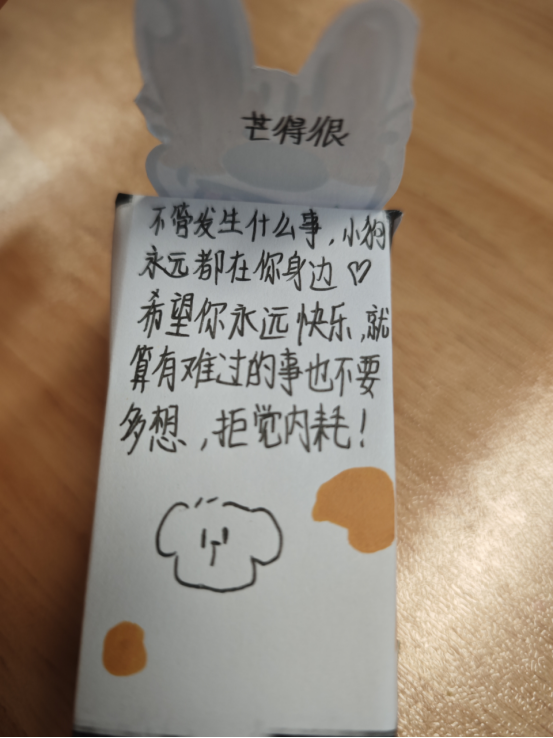 芒得很
不管发生什么事，小狗
永远都在你身边♡
希望你永远快乐，就
算有难过的事也不要
多想，拒觉内耗！